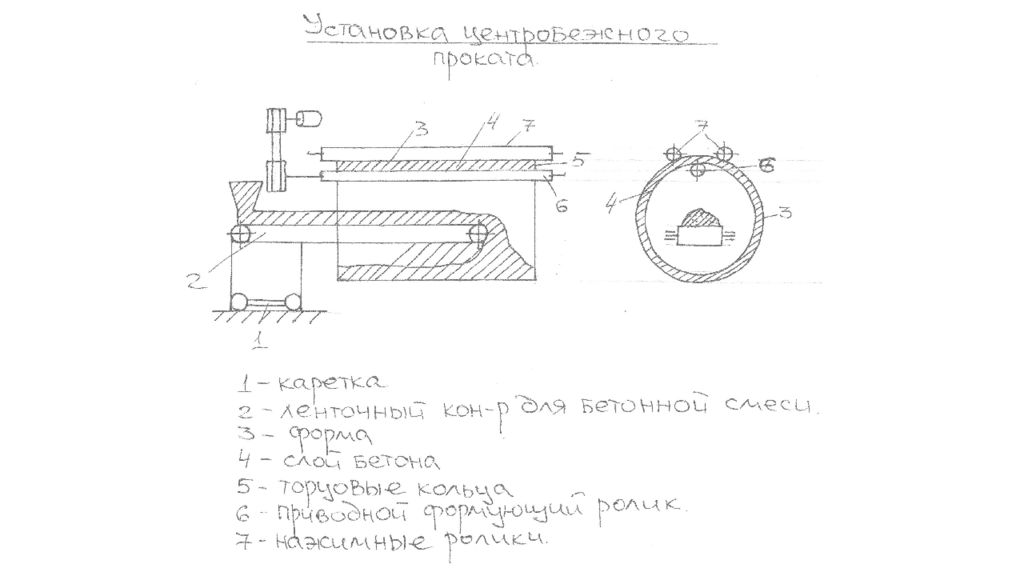 Установка центробежного
проката.
3
4
7
5
6
2
1
7
6
4
3
1 – каретка
2 – ленточный кон-р для бетонной смеси.
3 – форма
4 – слой бетона
5 – торцовые кольца
6 – приводной формующий ролик.
7 – нажимные ролики.